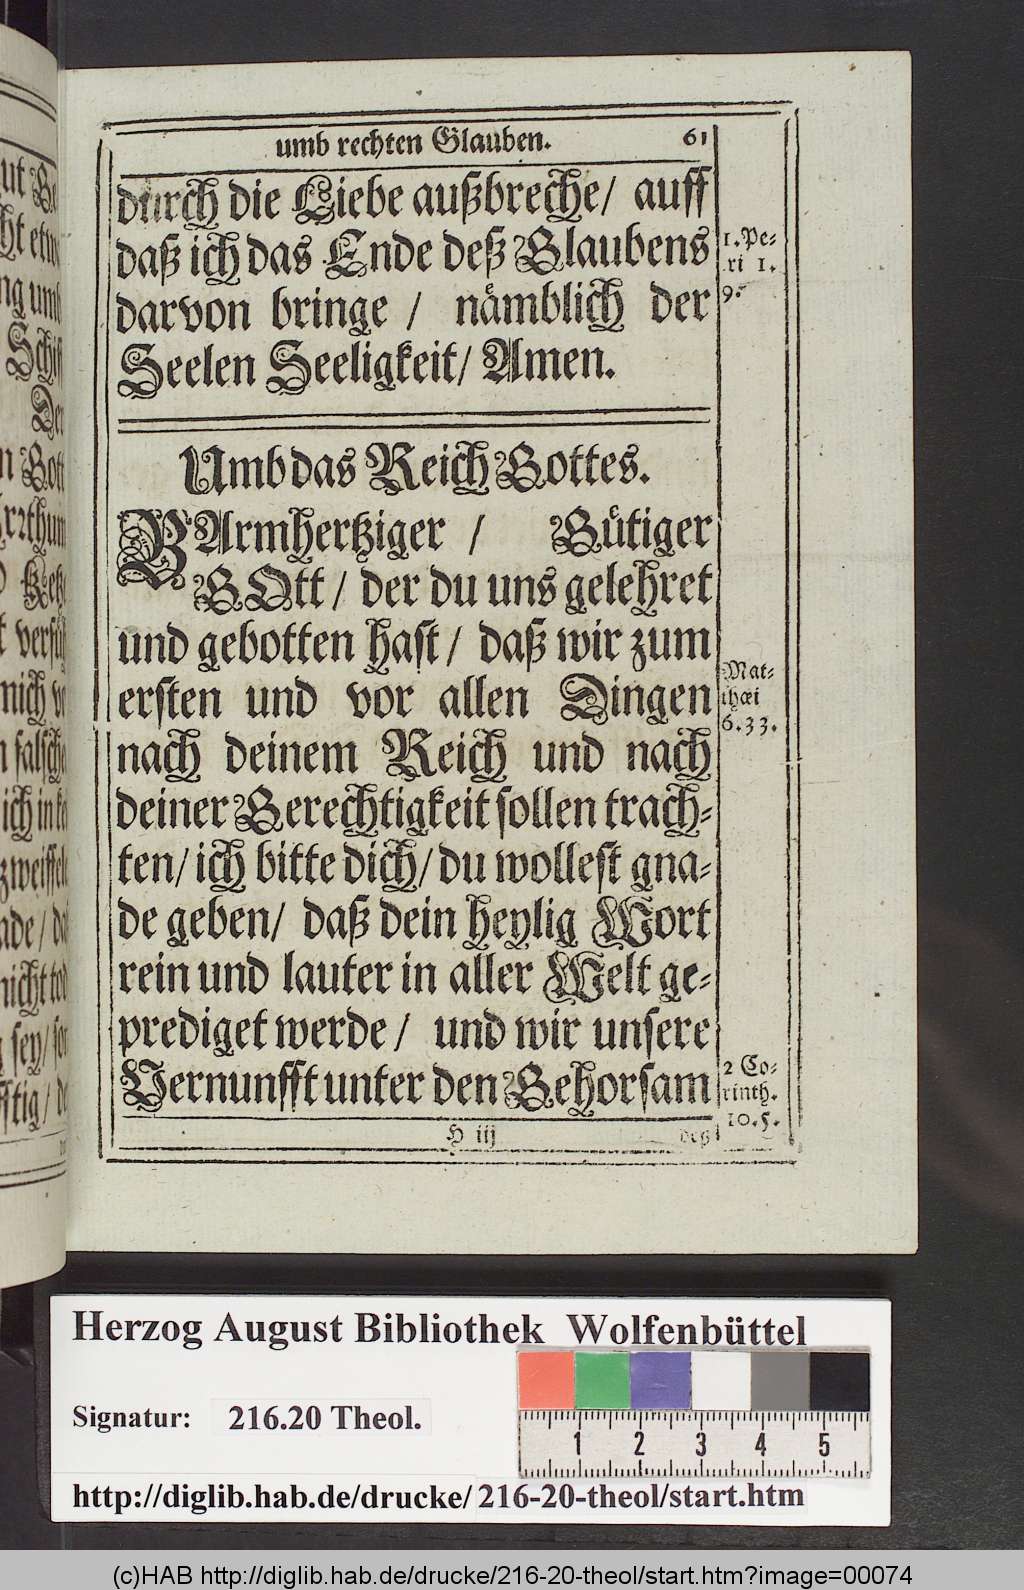 umb rechten Glauben. 61
durch die Liebe außbreche/ auff
daß ich das Ende deß Glaubens
darvon bringe / nämblich der
Seelen Seeligkeit/ Amen.
1. Pe-
ri 1.
9.
Umb das Reich Gottes.
BArmhertziger / Gütiger
GOtt / der du uns gelehret
und gebotten hast / daß wir zum
ersten und vor allen Dingen
nach deinem Reich und nach
deiner Gerechtigkeit sollen trach-
ten/ ich bitte dich/ du wollest gna-
de geben/ daß dein heylig Wort
rein und lauter in aller Welt ge-
prediget werde / und wir unsere
Vernunfft unter den Gehorsam
Mat-
thæi
6.33.
2 Co-
rinth.
10.5.
H iij deß
Herzog August Bibliothek Wolfenbüttel
Signatur: 216.20 Theol.
1 2 3 4 5
http://diglib.hab.de/drucke/216-20-theol/start.htm
(c)HAB http://diglib.hab.de/drucke/216-20-theol/start.htm?image=00074